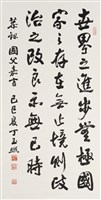 世界之進步無極國
家之存在無止境則政
治之改無已時
恭録 國父嘉言 己巳夏 丁玉